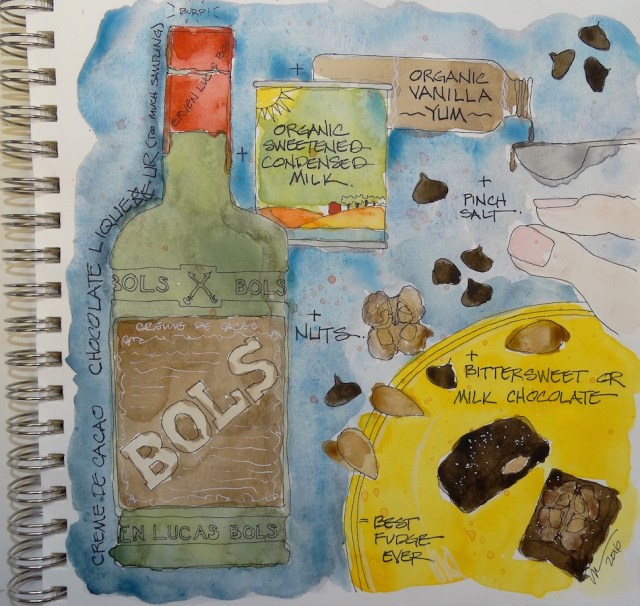 BURP!
ERVEN LUCAS BO
CREME DE CACAO CHOCOLATE LIQUEX EUR (TOO MUCH SAMPLING)
BOLS BOLS
CREME DE CACAO
BOLS
EN LUCAS BOLS
+
ORGANIC
SWEETENED
CONDENSED
MILK.
+
ORGANIC
VANILLA
~YUM~
+
PINCH
SALT.
+
NUTS.
+
BITTERSWEET OR
MILK CHOCOLATE
= BEST
FUDGE
EVER
2016